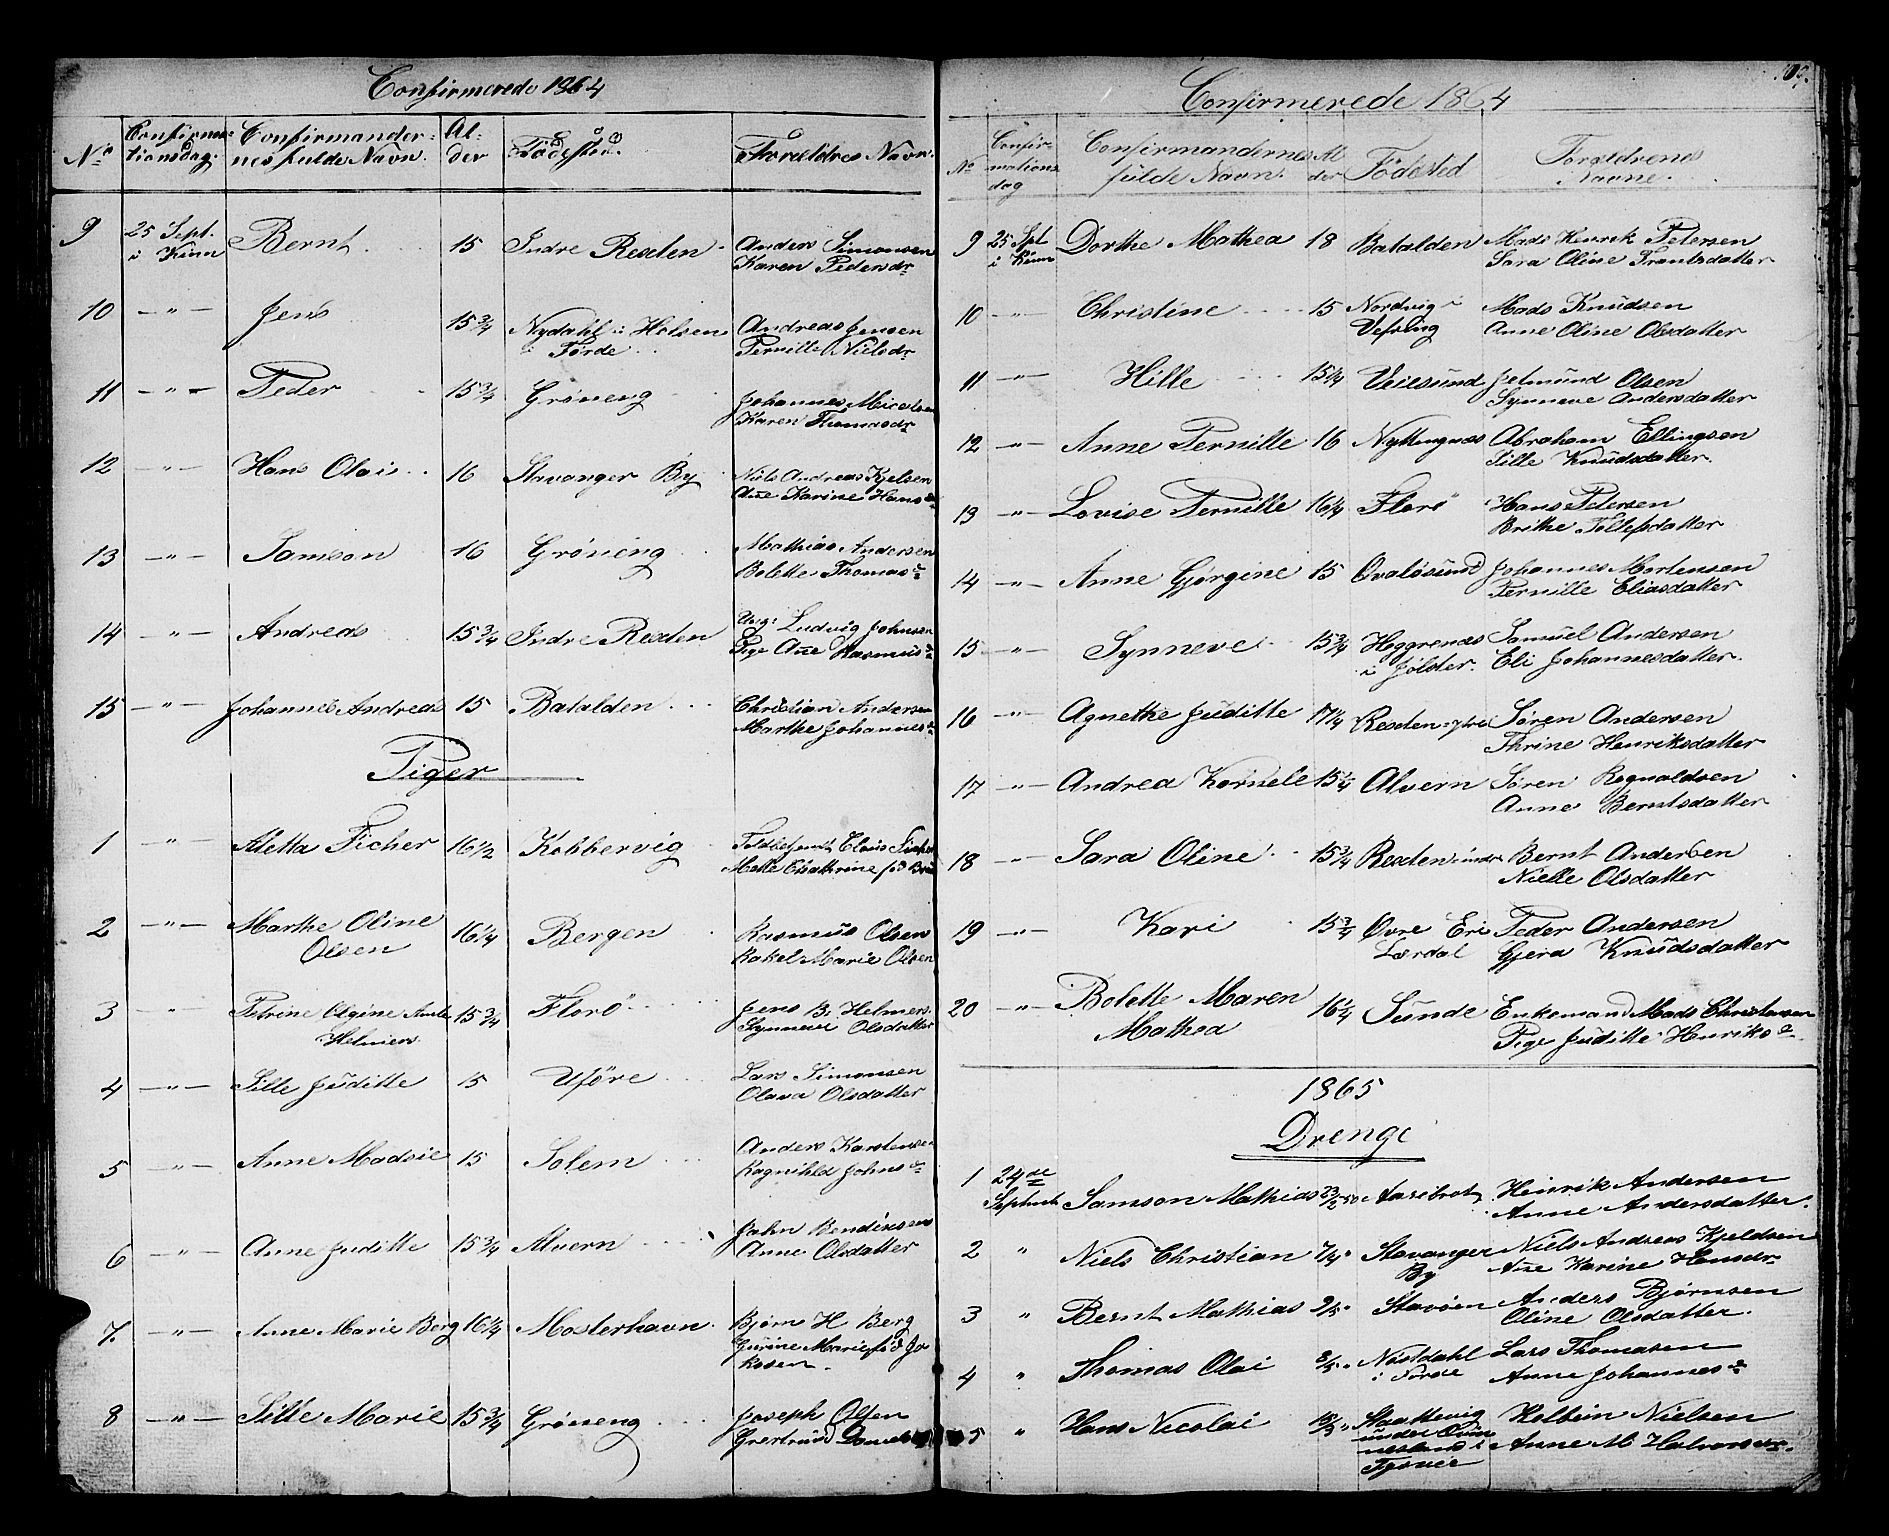 Confirmerede 1864
No Confirma- tionsdag. Confirmander- nes fulde Navn. Al- der Fødested. Forældres Navn.
9 25 Sept. i Kinn Bernt 15 Indre Rexten Anders Simonsen
Karen Pedersdr
10 -"- Jens 15 3/4 Nydahl i Holsen i Førde Andreas Jensen
Pernille Nielsdr
11 -"- Peder 15 3/4 Grøneng Johannes Micelsen
Karen Thomasdr
12 -"- Hans Olai 16 Stavanger By Niels Andreas Kjelsen
Ane Karine Hansd
13 -"- Samson 16 Grøneng Mathias Andersen
Bolette Thomasd
14 -"- Andreas 15 3/4 Indre Rexten Ung: Ludvig Johnsen
Pige Ane Rasmusd
15 -"- Johannes Andreas 15 Batalden Christian Andersen
Marthe Johannesd
Piger
1 -"- Aletta Ficher 16 1/2 Kobbervig Claus
Mette Cathrine fød
2 -"- Marthe Oline Olsen 16 1/4 Bergen Rasmus Olsen
Rakel Marie Olsen
3 -"- Petrine Olgine Helmers 15 3/4 Florø Jens B. Helmers
Synneve Olsdatter
4 -"- Sille Juditte 15 Uføre Lars Simonsen
Olava Olsdatter
5 -"- Anne Madsie 15 Solem Anders Karstensen
Ragnihld Johnsd
6 -"- Anne Juditte 15 3/4 Alvern John Bendixsen
Anne Olsdatter
7 -"- Anne Marie Berg 16 1/4 Mosterhavn Bjørn H Berg
Gurine Marie fød Jo
kosen
8 -"- Sille Marie 15 3/4 Grøneng Joseph Olsen
Grertrud
Confirmerede 1864
No Confir- mations dag Confirmandernes fulde Navn. Al der Fødested Forældrenes Navne.
9 25 Spt i Kinn Dorthe Mathea 18 Batalden Mads Henrik Petersen
Sara Oline Frantsdatter
10 -"- Christine 15 Nordvig i Vefring Mads Knudsen
Anne Oline Olsdatter
11 -"- Hille 15 1/4 Veiesund Jetmund Olsen
Synneve Andersdatter
12 -"- Anne Pernille 16 Nyttingnæs Abraham Ellingsen
Sille Knudsdatter
13 -"- Lovise Pernille 16 1/4 Florø Hans Petersen
Brithe Tollefsdatter
14 -"- Anne Gjørgine 15 Qvaløsund Johannes Mortensen
Pernille Eliasdatter
15 -"- Synneve 15 3/4 Heggrenæs i Jølster Samuel Andersen
Eli Johannesdatter
16 -"- Agnethe Juditte 17 1/4 Rexten ytre Søren Andersen
Thrine Henriksdatter
17 -"- Andrea Kornele 15 1/4 Alvern Søren Rognaldsen
Anne Berntsdatter
18 -"- Sara Oline 15 3/4 Rexten indre Bernt Andersen
Nielle Olsdatter
19 -"- Kari 15 3/4 Øvre Eri Lærdal Peder Andersen
Gjera Knudsdatter
20 -"- Bolette Maren Mathea 16 1/4 Sunde Enkemand Mads Christensen
Pige Juditte Henriksd
1865
Drenge
1 24de Septmb Samson Mathias 23/2 50 Aasebrot Henrik Andersen
Anne Andersdatter
2 " Niels Christian 7/4 " Stavanger By Niels Andreas Kjeldsen
Ane Karine Hansdr
3 " Bernt Mathias 2/5 " Stavøen Anders Bjørnsen
Oline Olsdatter
4 " Thomas Olai 8/5 " Nostdahl i Førde Lars Thomasen
Anne Johannesd
5 " Hans Nicolai Staattevig under Kolbein Nielsen
Anne M Halvorsdr